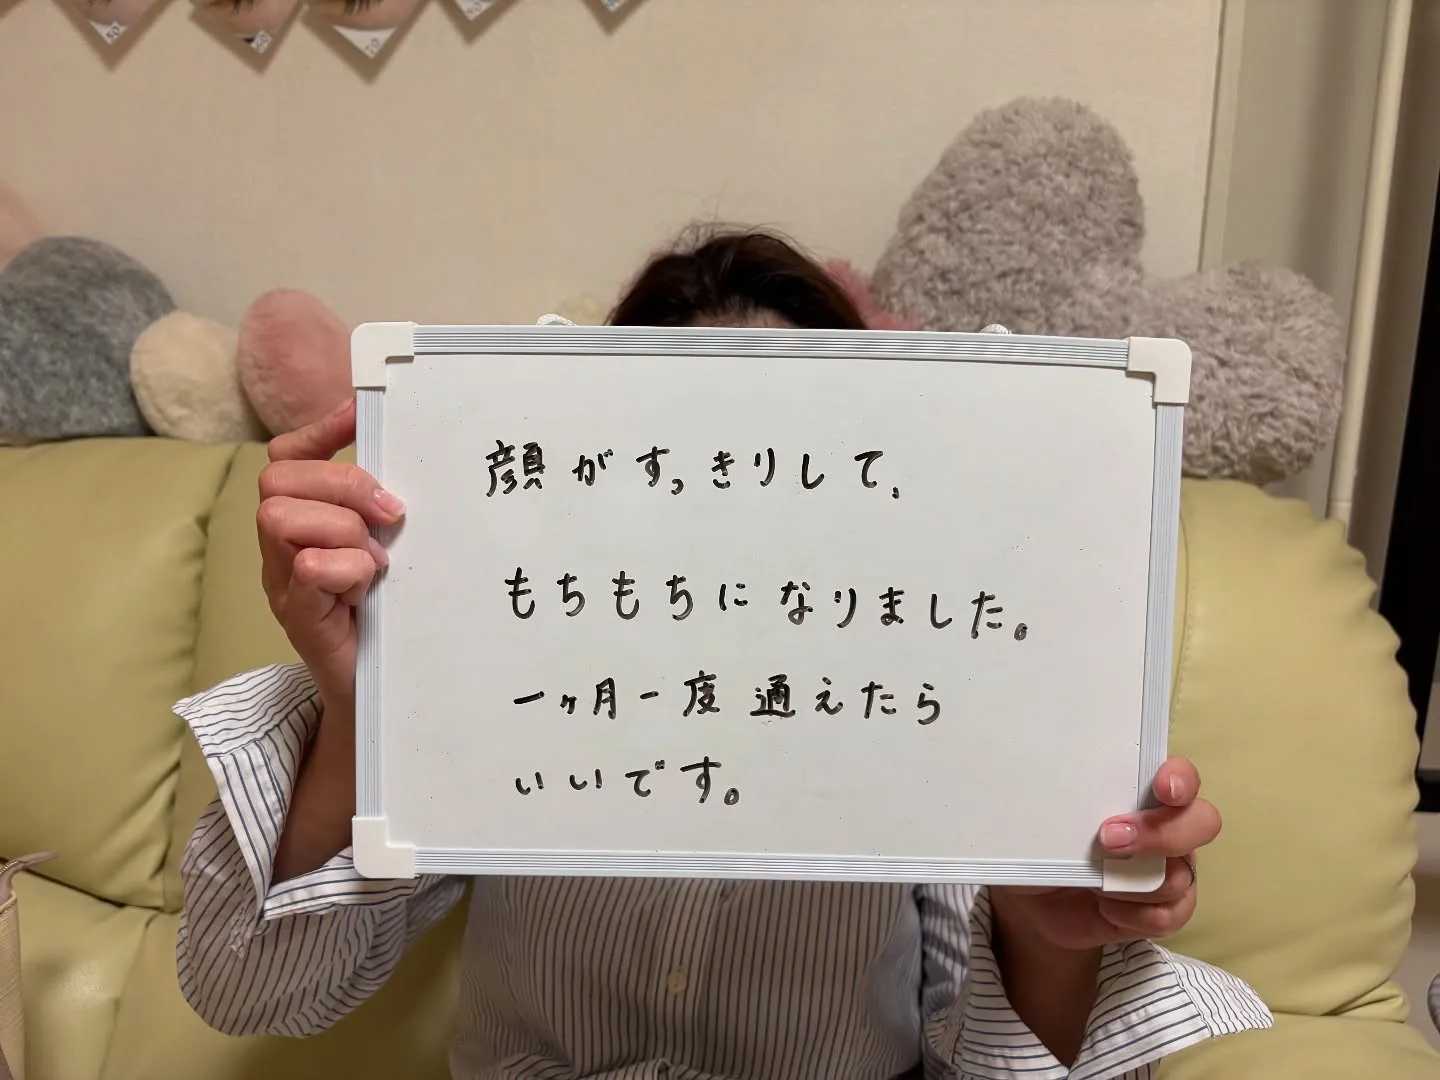 顔がすっきりして、
もちもちになりました。
一ヶ月一度通えたら
いいです。